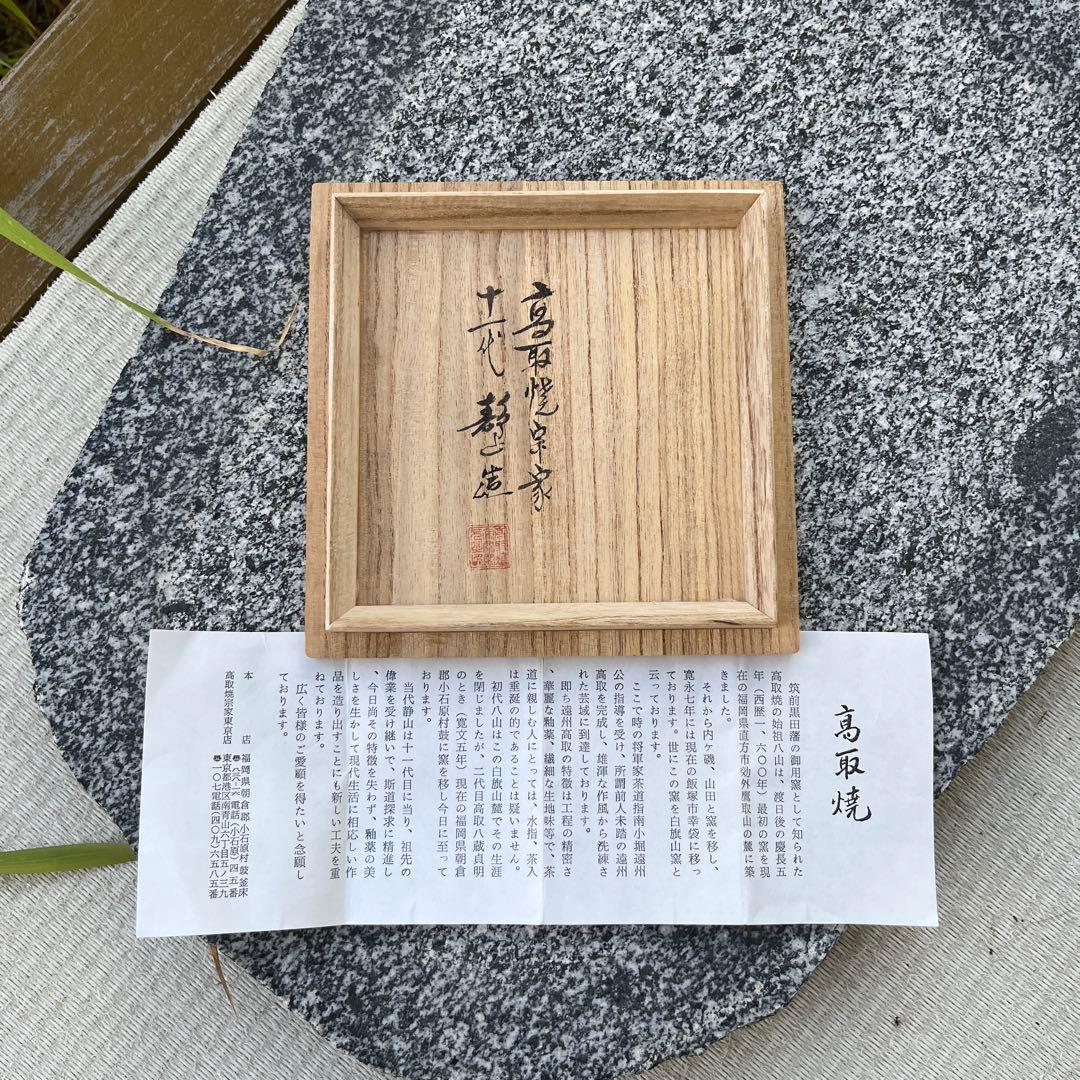 高取焼宗家
十一代 靜山造
高取焼
筑前黒田藩の御用窯として知られた
高取焼の始祖八山は、渡日後の慶長五
年(西歴一、六〇〇年)最初の窯を現
在の福岡県直方市効外鷹取山の麓に築
きました。
それから内ケ磯、山田と窯を移し、
寛永七年には現在の飯塚市幸袋に移っ
ております。世にこの窯を白旗山窯と
云っております。
ここで時の将軍家茶道指南小堀遠州
公の指導を受け、所謂前人未踏の遠州
高取を完成し、雄渾な作風から洗練さ
れた芸域に到達しております。
即ち遠州高取の特徴は工程の精密さ
、華麗な釉薬、繊細な生地味等で、茶
道に親しむ人にとっては、水指、茶入
は垂涎の的であることは疑いません。
初代八山はこの白旗山麓でその生涯
を閉じましたが、二代目高取八蔵貞明
のとき(寛文五年)現在の福岡県朝倉
郡小石原村鼓に窯を移し今日に至って
おります。
当代静山は十一代目に当り、祖先の
偉業を受け継いで、斯道探求に精進し
、今日尚その特徴を失わず、釉薬の美
しさを生かして現代生活に相応しい作
品を造り出すことにも新しい工夫を重
ねております。
広く皆様のご愛顧を得たいと念願し
ております。
本店 福岡県朝倉郡小石原村鼓釜床
電話(小石原)四五番
高取焼宗家東京店 東京都港区南青山六丁目五ノ三九
一〇七電話(四〇九)六五八五番